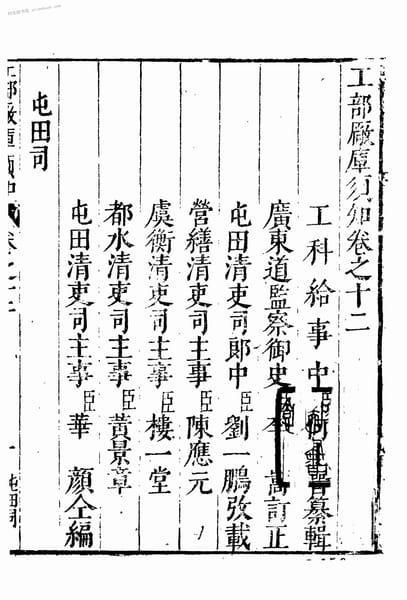 工部厰庫須知卷之十二
工科給事中臣何晉纂輯
廣東道監察御史臣李嵩訂正
屯田清吏司郎中臣劉一鵬攷載
營繕清吏司主事臣陳應元
虞衡清吏司主事臣樓一堂
都水清吏司主事臣黃景章
屯田清吏司主事臣華顏仝編
屯田司
工部厰庫須知 卷之十二 一